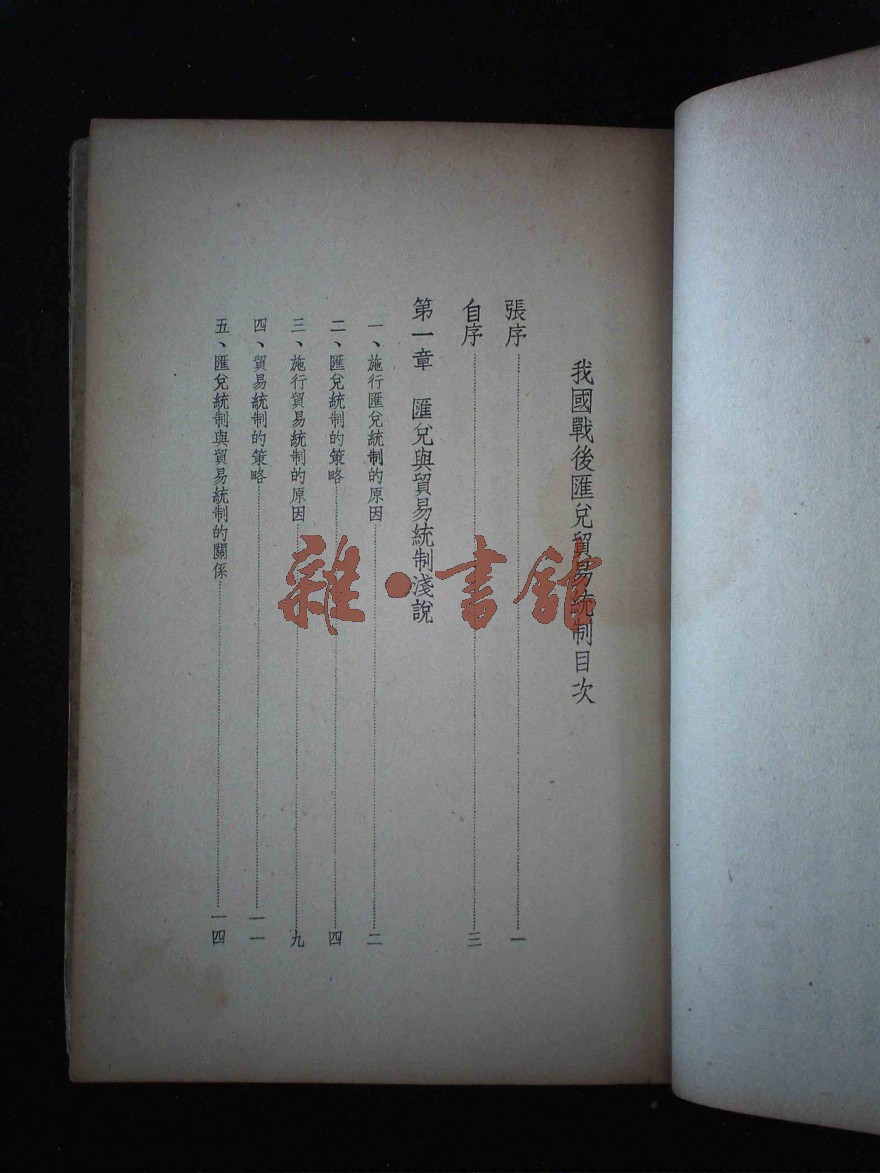 我國戰後匯兌貿易統制目次
張序……一
自序……三
第一章　匯兌與貿易統制淺說
一、施行匯兌統制的原因……二
二、匯兌統制的策略……四
三、施行貿易統制的原因……九
四、貿易統制的策略……一一
五、匯兌統制與貿易統制的關係……一四
雜·書館